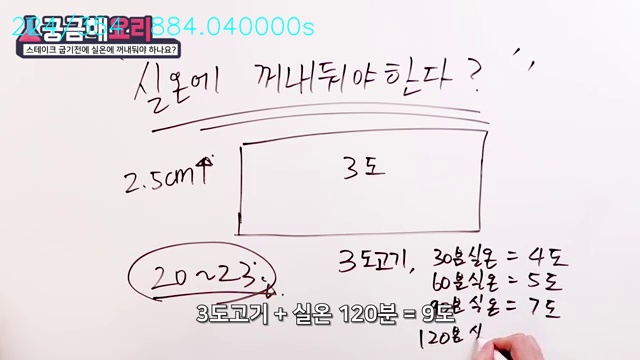 884.040000s
궁금해요리
스테이크 굽기전에 실온에 꺼내둬야 하나요?
실온에 꺼내둬야한다?
2.5cm↑
3도
20~23
3도고기, 30분실온 = 4도
60분실온 = 5도
분실온 = 7도
120분
3도고기 + 실온 120분 = 9도